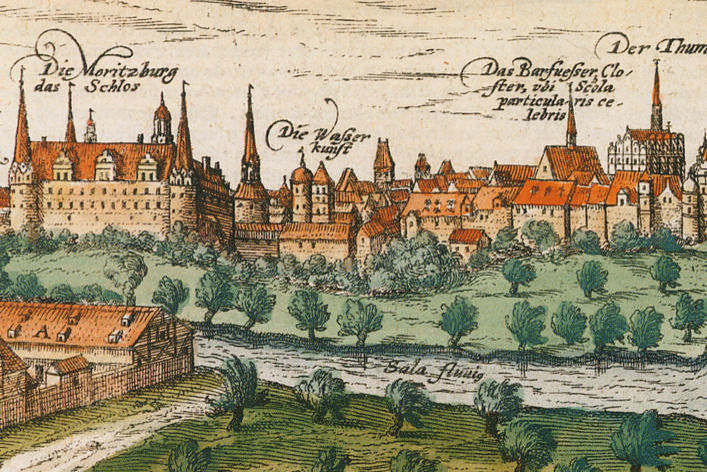 Die Moritzburg
das Schlos
Die Wasser
kunst
Das Barfuesser Clo-
ster, vbi Scola
particularis ce-
lebris
Der Thum
Sala fluvig